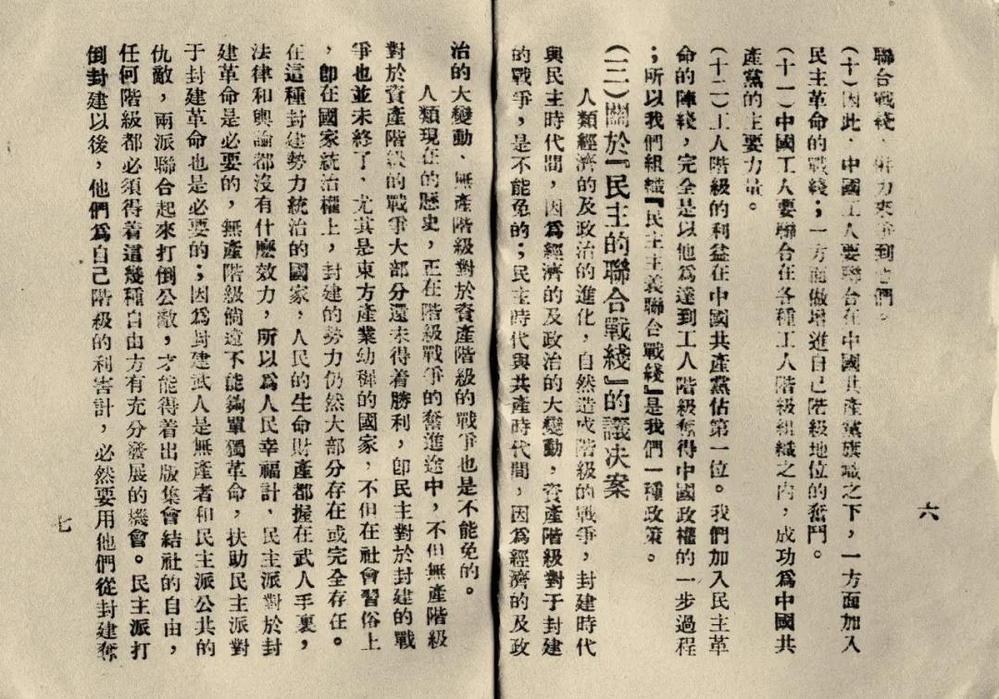 六
聯合戰綫、併力來爭到它們。
(十)因此、中國工人要聯合在中國共產黨旗幟之下，一方面加入
民主革命的戰綫；一方面做增進自己階級地位的奮鬥。
(十一)中國工人要聯合在各種工人階級組織之內，成功爲中國共
產黨的主要力量。
(十二)工人階級的利益在中國共產黨佔第一位。我們加入民主革
命的陣綫，完全是以他爲達到工人階級奪得中國政權的一步過程
；所以我們組織『民主主義聯合戰綫』是我們一種政策。
(三)關於『民主的聯合戰綫』的議决案
人類經濟的及政治的進化，自然造成階級的戰爭，封建時代
與民主時代間，因爲經濟的及政治的大變動，資產階級對于封建
的戰爭，是不能免的；民主時代與共產時代間，因爲經濟的及政
治的大變動、無產階級對於資產階級的戰爭也是不能免的。
人類現在的歷史，正在階級戰爭的奮進途中，不但無產階級
對於資產階級的戰爭大部分還未得着勝利，卽民主對於封建的戰
爭也並未終了、尤其是東方產業幼稺的國家，不但在社會習俗上
，卽在國家統治權上，封建的勢力仍然大部分存在或完全存在。
在這種封建勢力統治的國家，人民的生命財產都握在武人手裏，
法律和輿論都沒有什麽效力，所以爲人民幸福計、民主派對於封
建革命是必要的，無產階級倘還不能夠單獨革命，扶助民主派對
于封建革命也是必要的；因爲封建武人是無產者和民主派公共的
仇敵，兩派聯合起來打倒公敵，才能得着出版集會結社的自由，
任何階級都必須得着這幾種自由方有充分發展的機會。民主派打
倒封建以後，他們爲自己階級的利害計，必然要用他們從封建奪
七